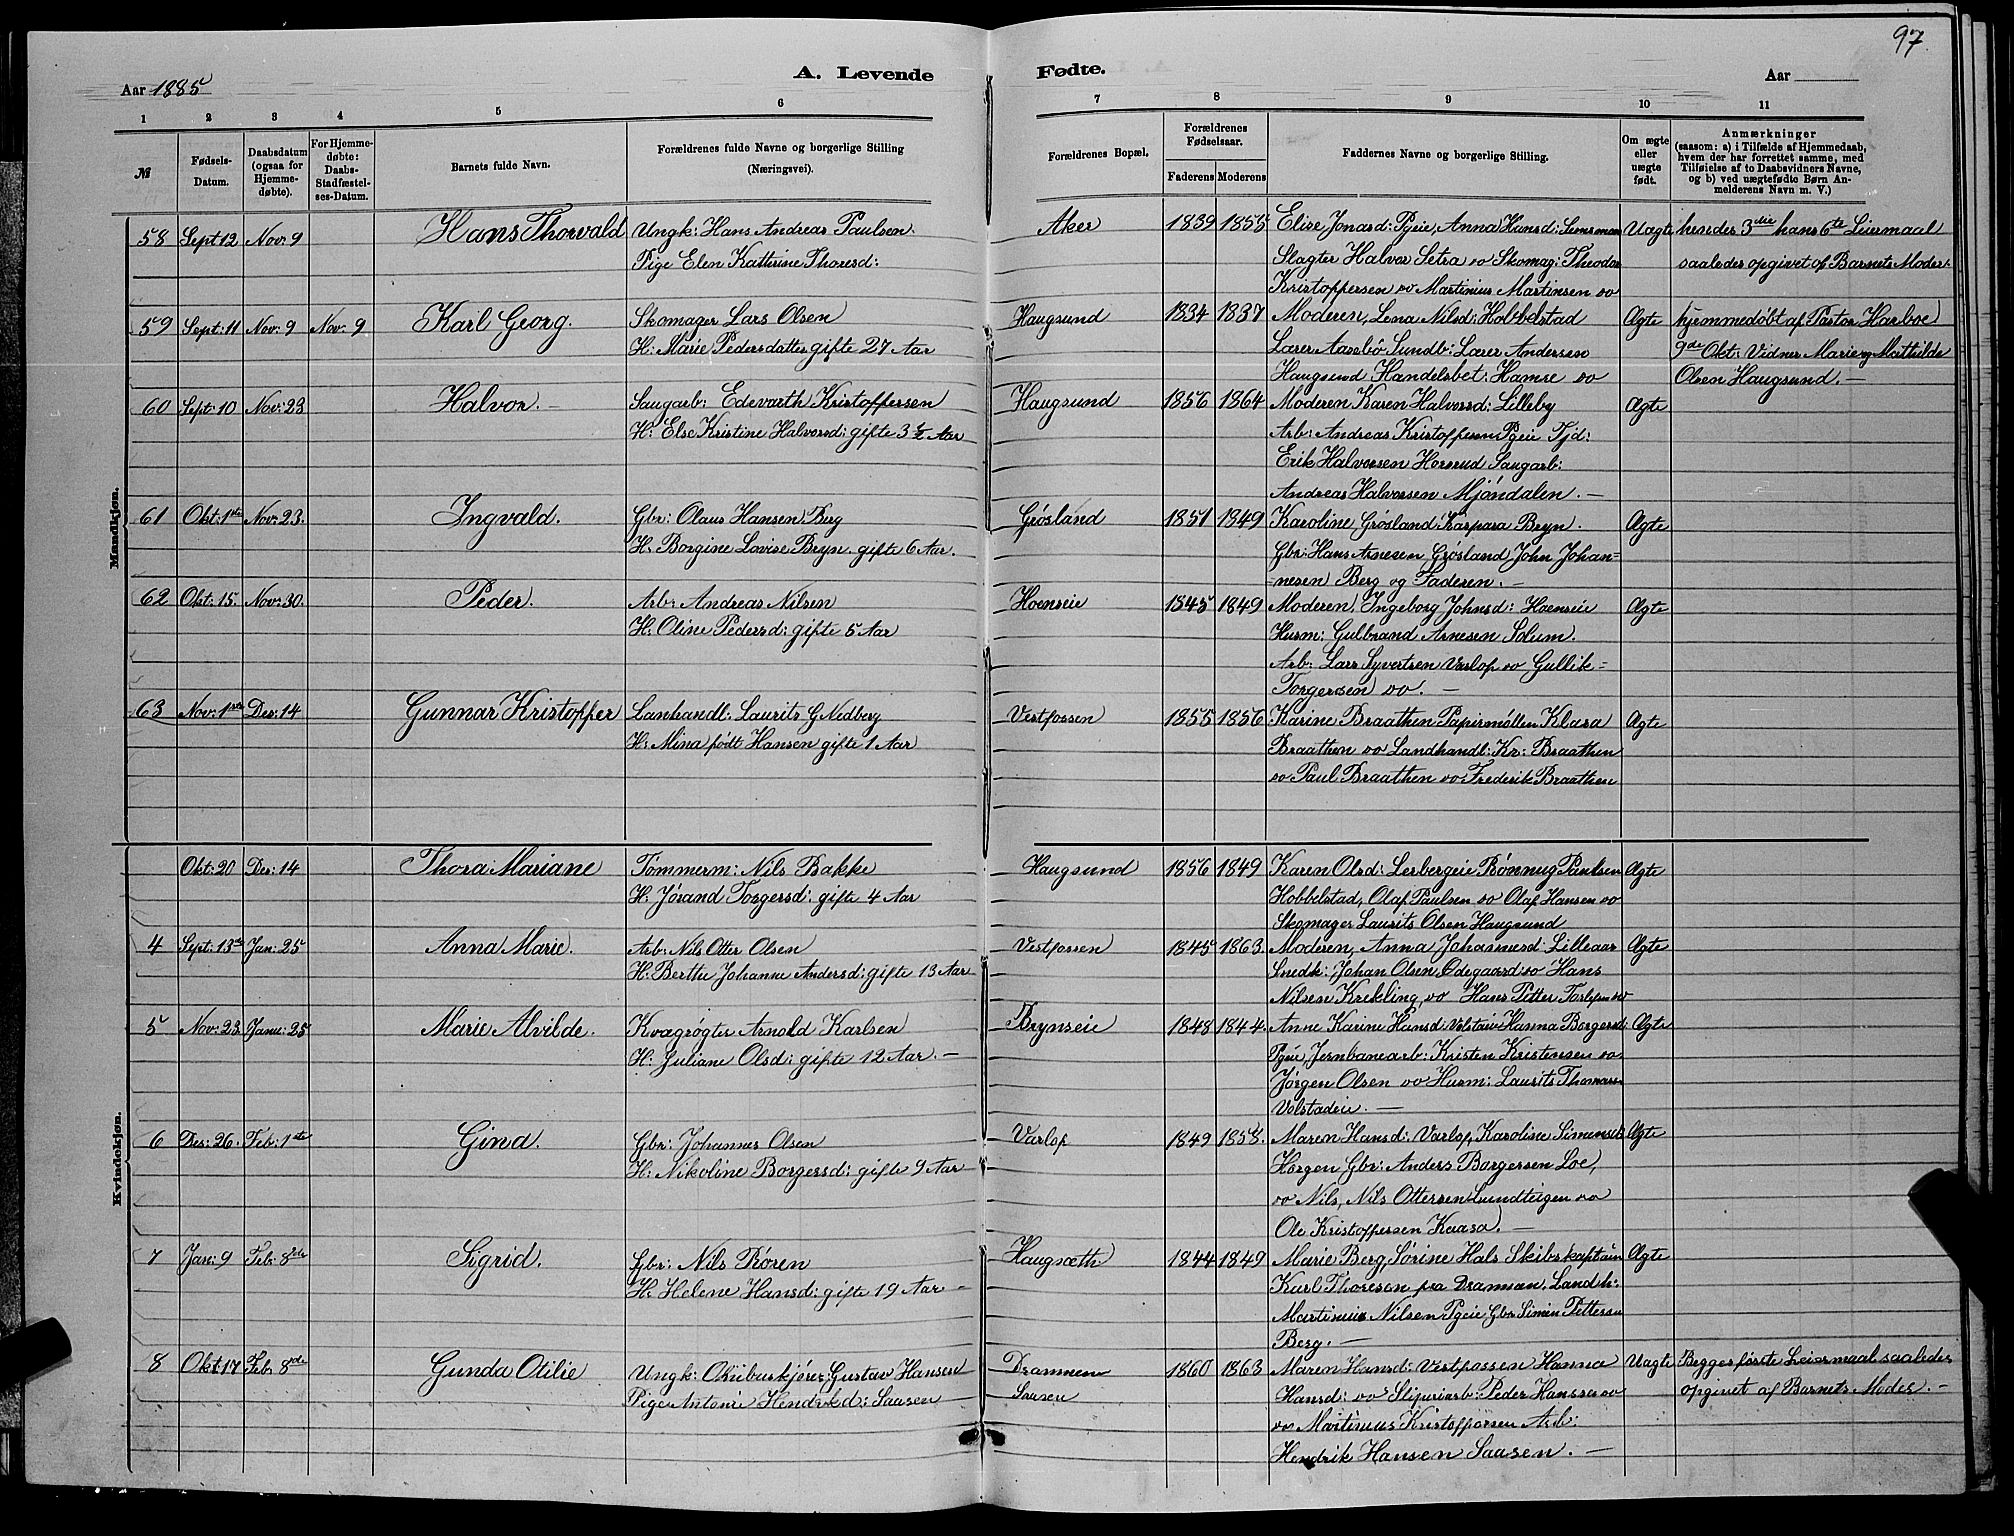 97.
A. Levende Fødte.
Aar 1885
Aar
1 2 3 4 5 6 7 8 9 10 11
№
Fødsels-Datum.
Daabsdatum (ogsaa for Hjemme-døbte).
For Hjemme-døbte: Daabs-Stadfæstel-ses-Datum.
Barnets fulde Navn.
Forældrenes fulde Navne og borgerlige Stilling (Næringsvei).
Forældrenes Bopæl.
Forældrenes Fødselsaar.
Faderens Moderens
Faddernes Navne og borgerlige Stilling.
Om ægte eller uægte født.
Anmærkninger (saasom: a) i Tilfælde af Hjemmedaab, hvem der har forrettet samme, med Tilføielse af to Daabsvidners Navne, og b) ved uægtefødte Børn An-melderens Navn m. V.)
Mandkjøn.
58 Sept 12 Nov: 9 Hans Thorvald Ungk: Hans Andreas Paulsen. Aker 1839 1855 Elise Jonasd: Pgeie, Anna Hansd: Uægte hendes 3die hans 6te Leiermaal
Pige Elen Kathrine Thoresd: Slagter Halvor Setra oo Skomag: Theodor saaledes opgivet af Barnets Moder.
Kristoffersen oo Martinius Martinsen oo
59 Sept: 11 Nov: 9 Nov: 9 Karl Georg. Skomager Lars Olsen Haugsund 1834 1837 Moderen, Lena Nilsd: Hobbelstad Ægte hjemmedøbt af Pastor Harboe
H: Marie Pedersdatter gifte 27 Aar Lærer Aasebö Sundb: Lærer Andersen 9de Okt: Vidner Marie og Mathilde
Haugsund Handelsbet: Hamre oo Olsen Haugsund. —
60 Sept: 10 Nov: 23 Halvor. — Saugarb: Edevarth Kristoffersen Haugsund 1856 1864 Moderen Karen Halvorsd: Lilleby Ægte
H: Else Kristine Halvorsd: gifte 3½ Aar Arb: Andreas Kristoffersen Pgeie Tjd:
Erik Halvorsen Horsrud Saugarb:
Andreas Halvorsen Mjöndalen. —
61 Okt: 1ste Nov: 23. Ingvald. Gbr: Olaus Hansen Berg Grøsland 1851 1849 Karoline Grøsland, Kaspara Bryn. Ægte
H: Borgine Lovise Bryn. gifte 6 Aar. Gbr: Hans Arnesen Grøsland John Johan=
=nesen Berg og Faderen. —
62 Okt: 15. Nov: 30. Peder. Arb: Andreas Nilsen Hoenseie 1845 1849 Moderen, Ingeborg Johnsd: Hoenseie Ægte
H: Oline Pedersd: gifte 5 Aar Husm: Gulbrand Arnesen Solum.
Arb: Lars Syvertsen Varlop oo Gullik=
Torgersen oo. —
63 Nov: 1ste Des: 14 Gunnar Kristoffer Lanhandl: Laurits G Nedberg Vestfossen 1855 1856 Karine Braathen Papirmöllen Klara Ægte
H: Mina født Hansen gifte 1 Aar Braathen oo Landhandl: Kr: Braathen
oo Paul Braathen oo Frederik Braathen
Kvindekjøn.
Okt: 20 Des: 14 Thora Mariane Tömmerm: Nils Bakke Haugsund 1856 1849 Karen Olsd: Lerbergeie Rönnug Paulsen Ægte
H: Jörand Torgersd: gifte 4 Aar Hobbelstad, Olaf Paulsen oo Olaf Hansen oo
Skomager Laurits Olsen Haugsund
4 Sept: 13de Jan: 25 Anna Marie. Arb: Nils Otter Olsen Vestfossen 1845 1863. Moderen, Anna Johannesd: Lilleaas Ægte
H: Berthe Johanne Andersd: gifte 13 Aar Snedk: Johan Olsen Ødegaard: oo Hans
Nilsen Krekling, oo Hans Petter oo
5 Nov: 23 Janu: 25 Marie Alvilde. Kvægrøgter Arnold Karlsen Brynseie 1848 1844. Anne Karine Hansd: Hanna Borgersd: Ægte
H: Juliane Olsd: gifte 12 Aar. — Pgeie, Jernbanearb: Kristen Kristensen oo
Jörgen Olsen oo Husm: Laurits Thomasen
6 Des: 26. Feb: 1ste Gina. Gbr: Johannes Olsen Varlop 1849 1858. Maren Hansd: Varlop, Karoline Simensd: Ægte
H: Nikoline Borgersd: gifte 9 Aar Horgen, Gbr: Anders Borgersen Loe,
oo Nils, Nils Ottersen Lundteigen oo
Ole Kristoffersen Kaasa. —
7 Jan: 9 Feb: 8de Sigrid. Gbr: Nils Roren Haugsæth 1844 1849 Marie Berg, Sörine Hals Skibskaptain Ægte
H: Helene Hansd: gifte 19 Aar — Karl Thoresen fra Dramman, Landh:
Martinius Nilsen Pgeie Gbr: Simen Pettersen
Berg. —
8 Okt: 17 Feb: 8de Gunda Otilie Ungk: Gustav Hansen Drammen 1860 1863 Maren Hansd: Vestfossen Hanna Uægte Begges første Leiermaal saaledes
Pige Antoni Hendriksd: Saasen Saasen Hansd: oo Sliperiarb: Peder Hansen oo opgivet af Barnets Moder. —
oo Martinius Kristoffersen Arb:
Hendrik Hansen Saasen. —